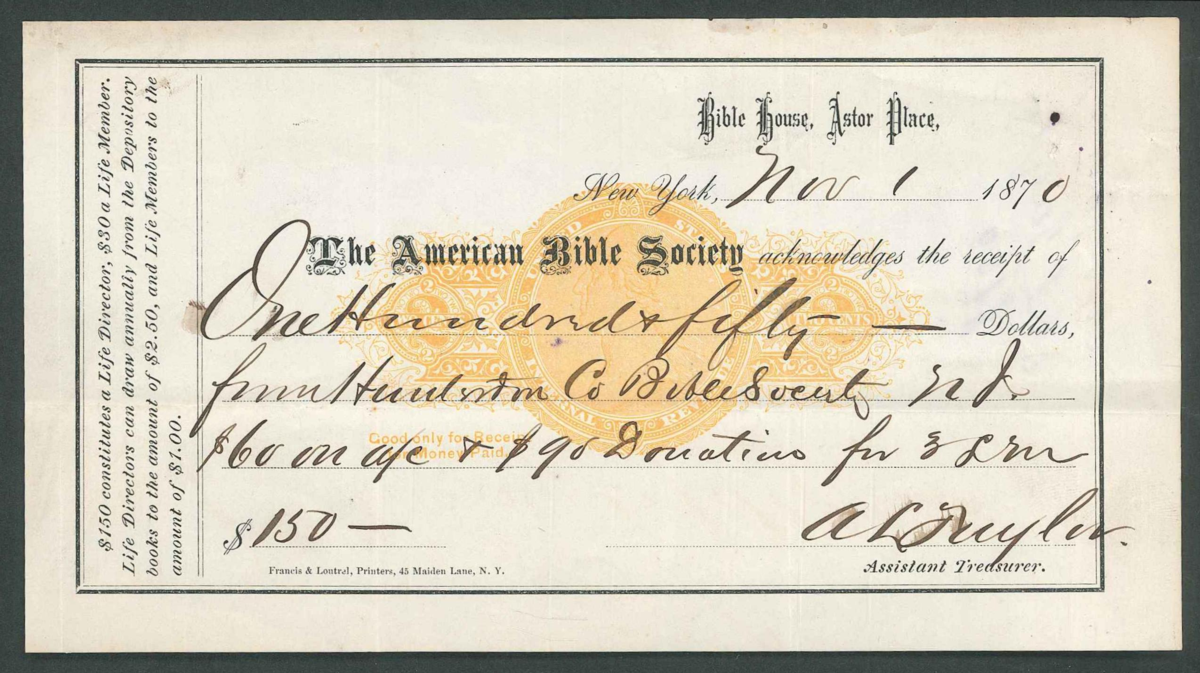 $150 constitutes a Life Director, $30 a Life Member.
Life Directors can draw annually from the Depository
books to the amount of $2.50, and Life Members to the
amount of $1.00.
Bible House, Astor Place,
New York, Nov 1 1870
The American Bible Society acknowledges the receipt of
One Hundred & fifty — Dollars,
from Hunterdon Co Bible Society N J.
Good only for Receipt
for Money Paid.
$60 on a/c & $90 Donation for 3 L M
$ 150 —
A L Taylor.
Assistant Treasurer.
Francis & Loutrel, Printers, 45 Maiden Lane, N. Y.